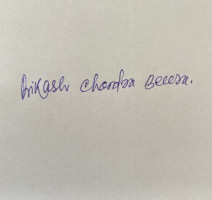 Bikash Chandra Beura.